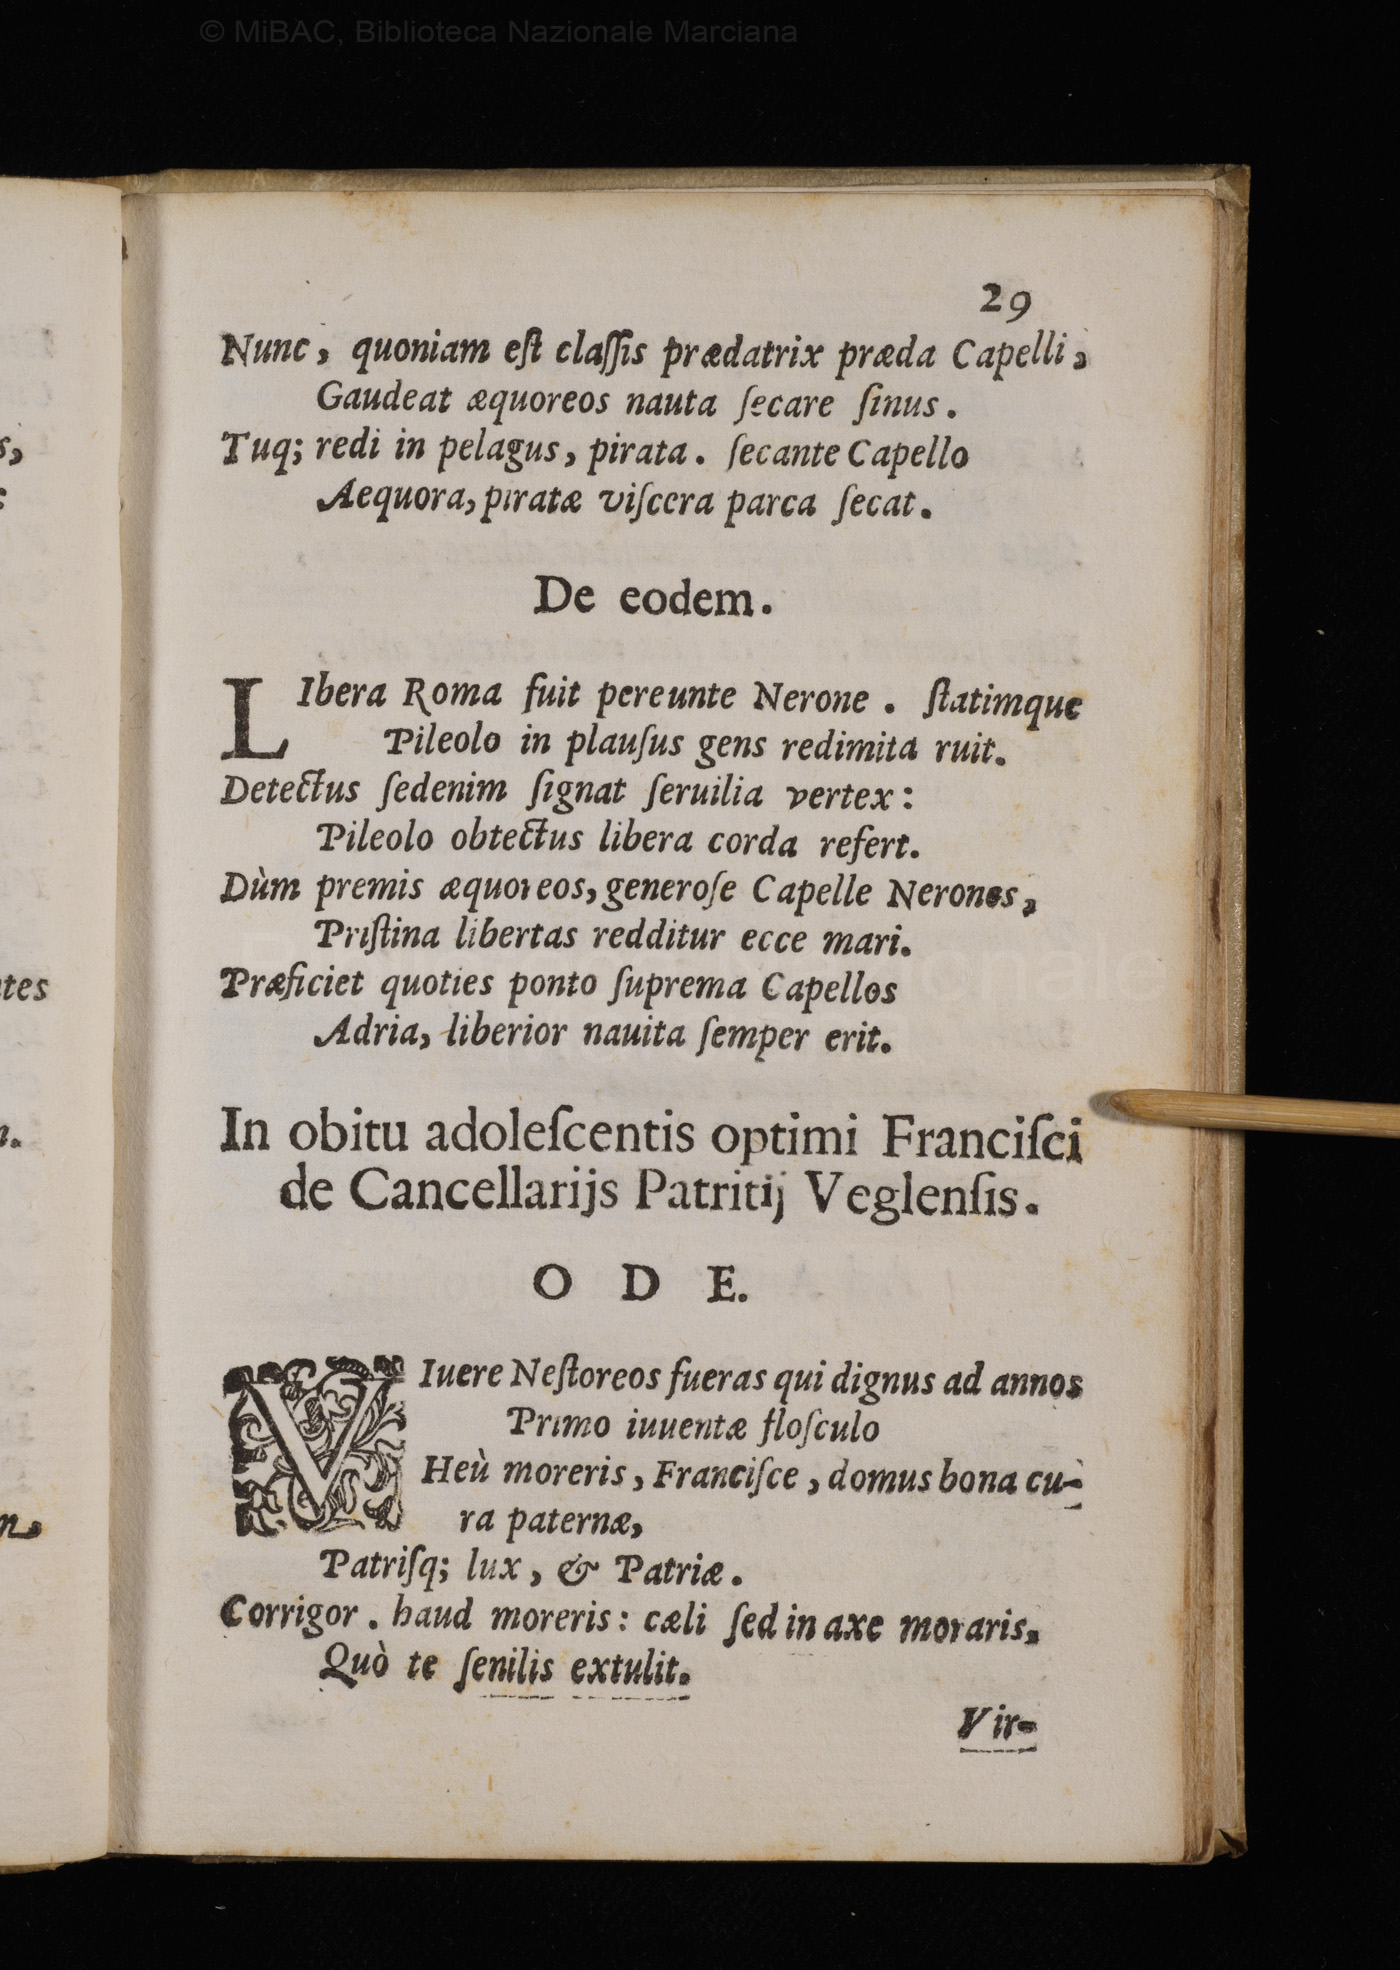 © MiBAC, Biblioteca Nazionale Marciana
29
Nunc, quoniam eſt claſſis prædatrix præda Capelli,
Gaudeat æquoreos nauta ſecare ſinus.
Tuq; redi in pelagus, pirata. ſecante Capello
Aequora, piratæ viſcera parca ſecat.
De eodem.
LIbera Roma fuit pereunte Nerone. ſtatimque
Pileolo in plauſus gens redimita ruit.
Detectus ſedenim ſignat ſeruilia vertex:
Pileolo obtectus libera corda refert.
Dùm premis æquoreos, generoſe Capelle Nerones,
Priſtina libertas redditur ecce mari.
Præficiet quoties ponto ſuprema Capellos
Adria, liberior nauita ſemper erit.
In obitu adoleſcentis optimi Franciſci
de Cancellarijs Patritij Veglenſis.
O D E.
VIuere Neſtoreos fueras qui dignus ad annos
Primo iuuentæ floſculo
Heù moreris, Franciſce, domus bona cu-
ra paternæ,
Patriſq; lux, & Patriæ.
Corrigor. haud moreris: cæli ſed in axe moraris,
Quò te ſenilis extulit.
Vir-
s,
tes
n.
n,